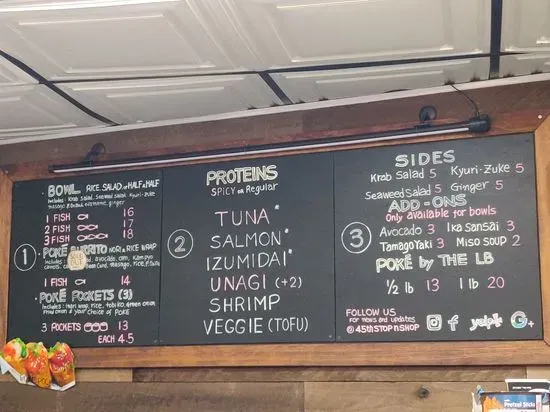 BOWL RICE, SALAD, or HALF & HALF
Includes: Krab Salad, Seaweed salad, Kyuri-zuke
masago & edamame, ginger
1 FISH 16
2 FISH 17
3 FISH 18
1
POKÉ BURRITO NORI & RICE WRAP
avocado, om, Kampyo
masago, rice,
1 FISH 14
POKÉ POCKETS (3)
Includes: inari wrap, rice, tobiko, green onion
& your choice of POKÉ
3 POCKETS 13
EACH 4.5
PROTEINS
SPICY or Regular
2
TUNA*
SALMON*
IZUMIDAI*
UNAGI (+2)
SHRIMP
VEGGIE (TOFU)
SIDES
Krab Salad 5 Kyuri-Zuke 5
Seaweed Salad 5 Ginger 5
ADD-ONS
Only available for bowls
3
Avocado 3 Ika Sansai 3
Tamago Yaki 3 Miso Soup 2
POKÉ by THE LB
1/2 lb 13 1 lb 20
FOLLOW US
for news and updates
@45thSTOPNSHOP
f yelp G+
Pretzel Stick